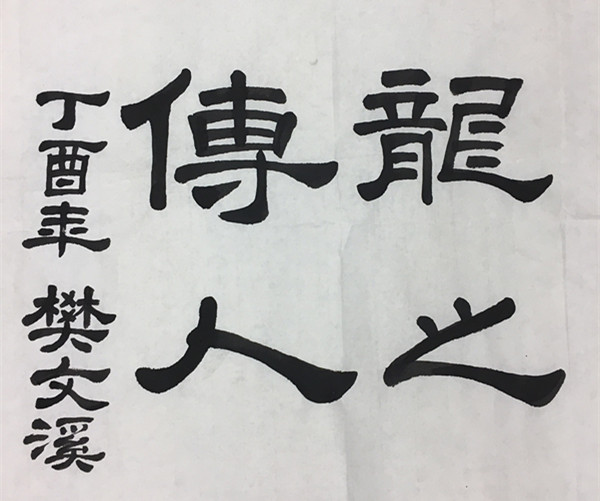 龍之
傳人
丁酉年 樊文溪